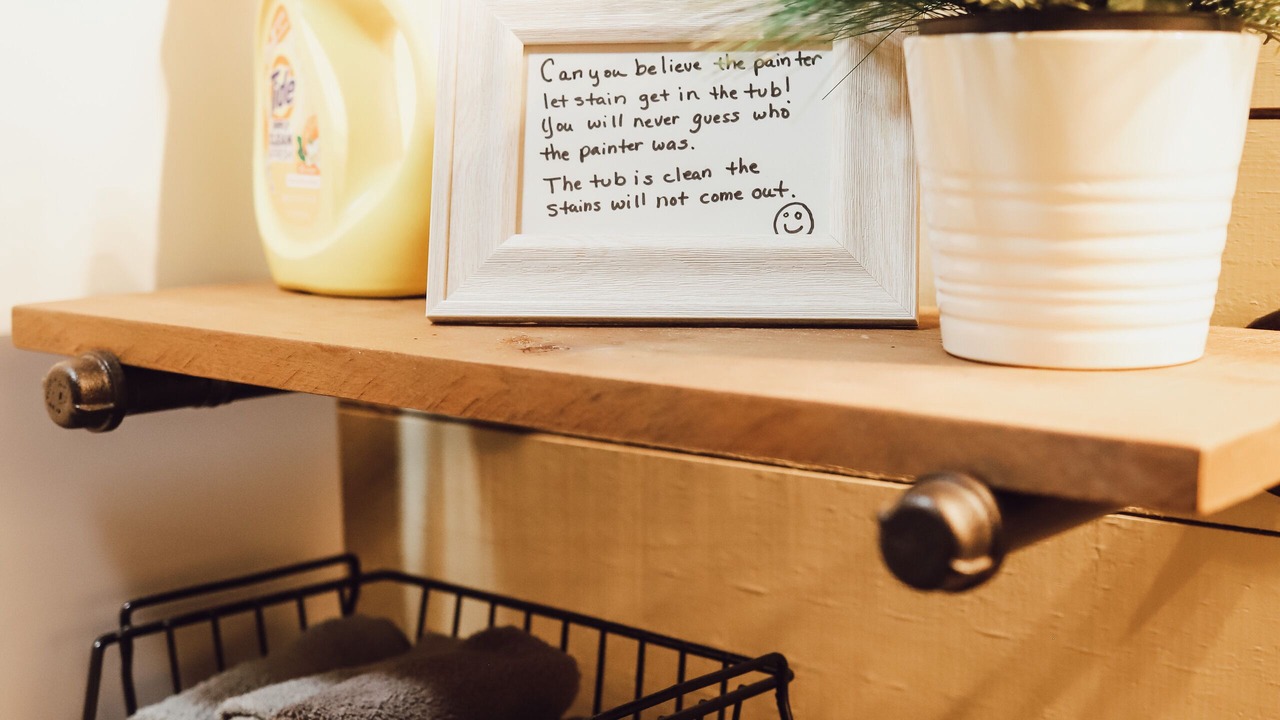 Tide
CLEAN
Can you believe the painter
let stain get in the tub!
You will never guess who
the painter was.
The tub is clean the
stains will not come out.